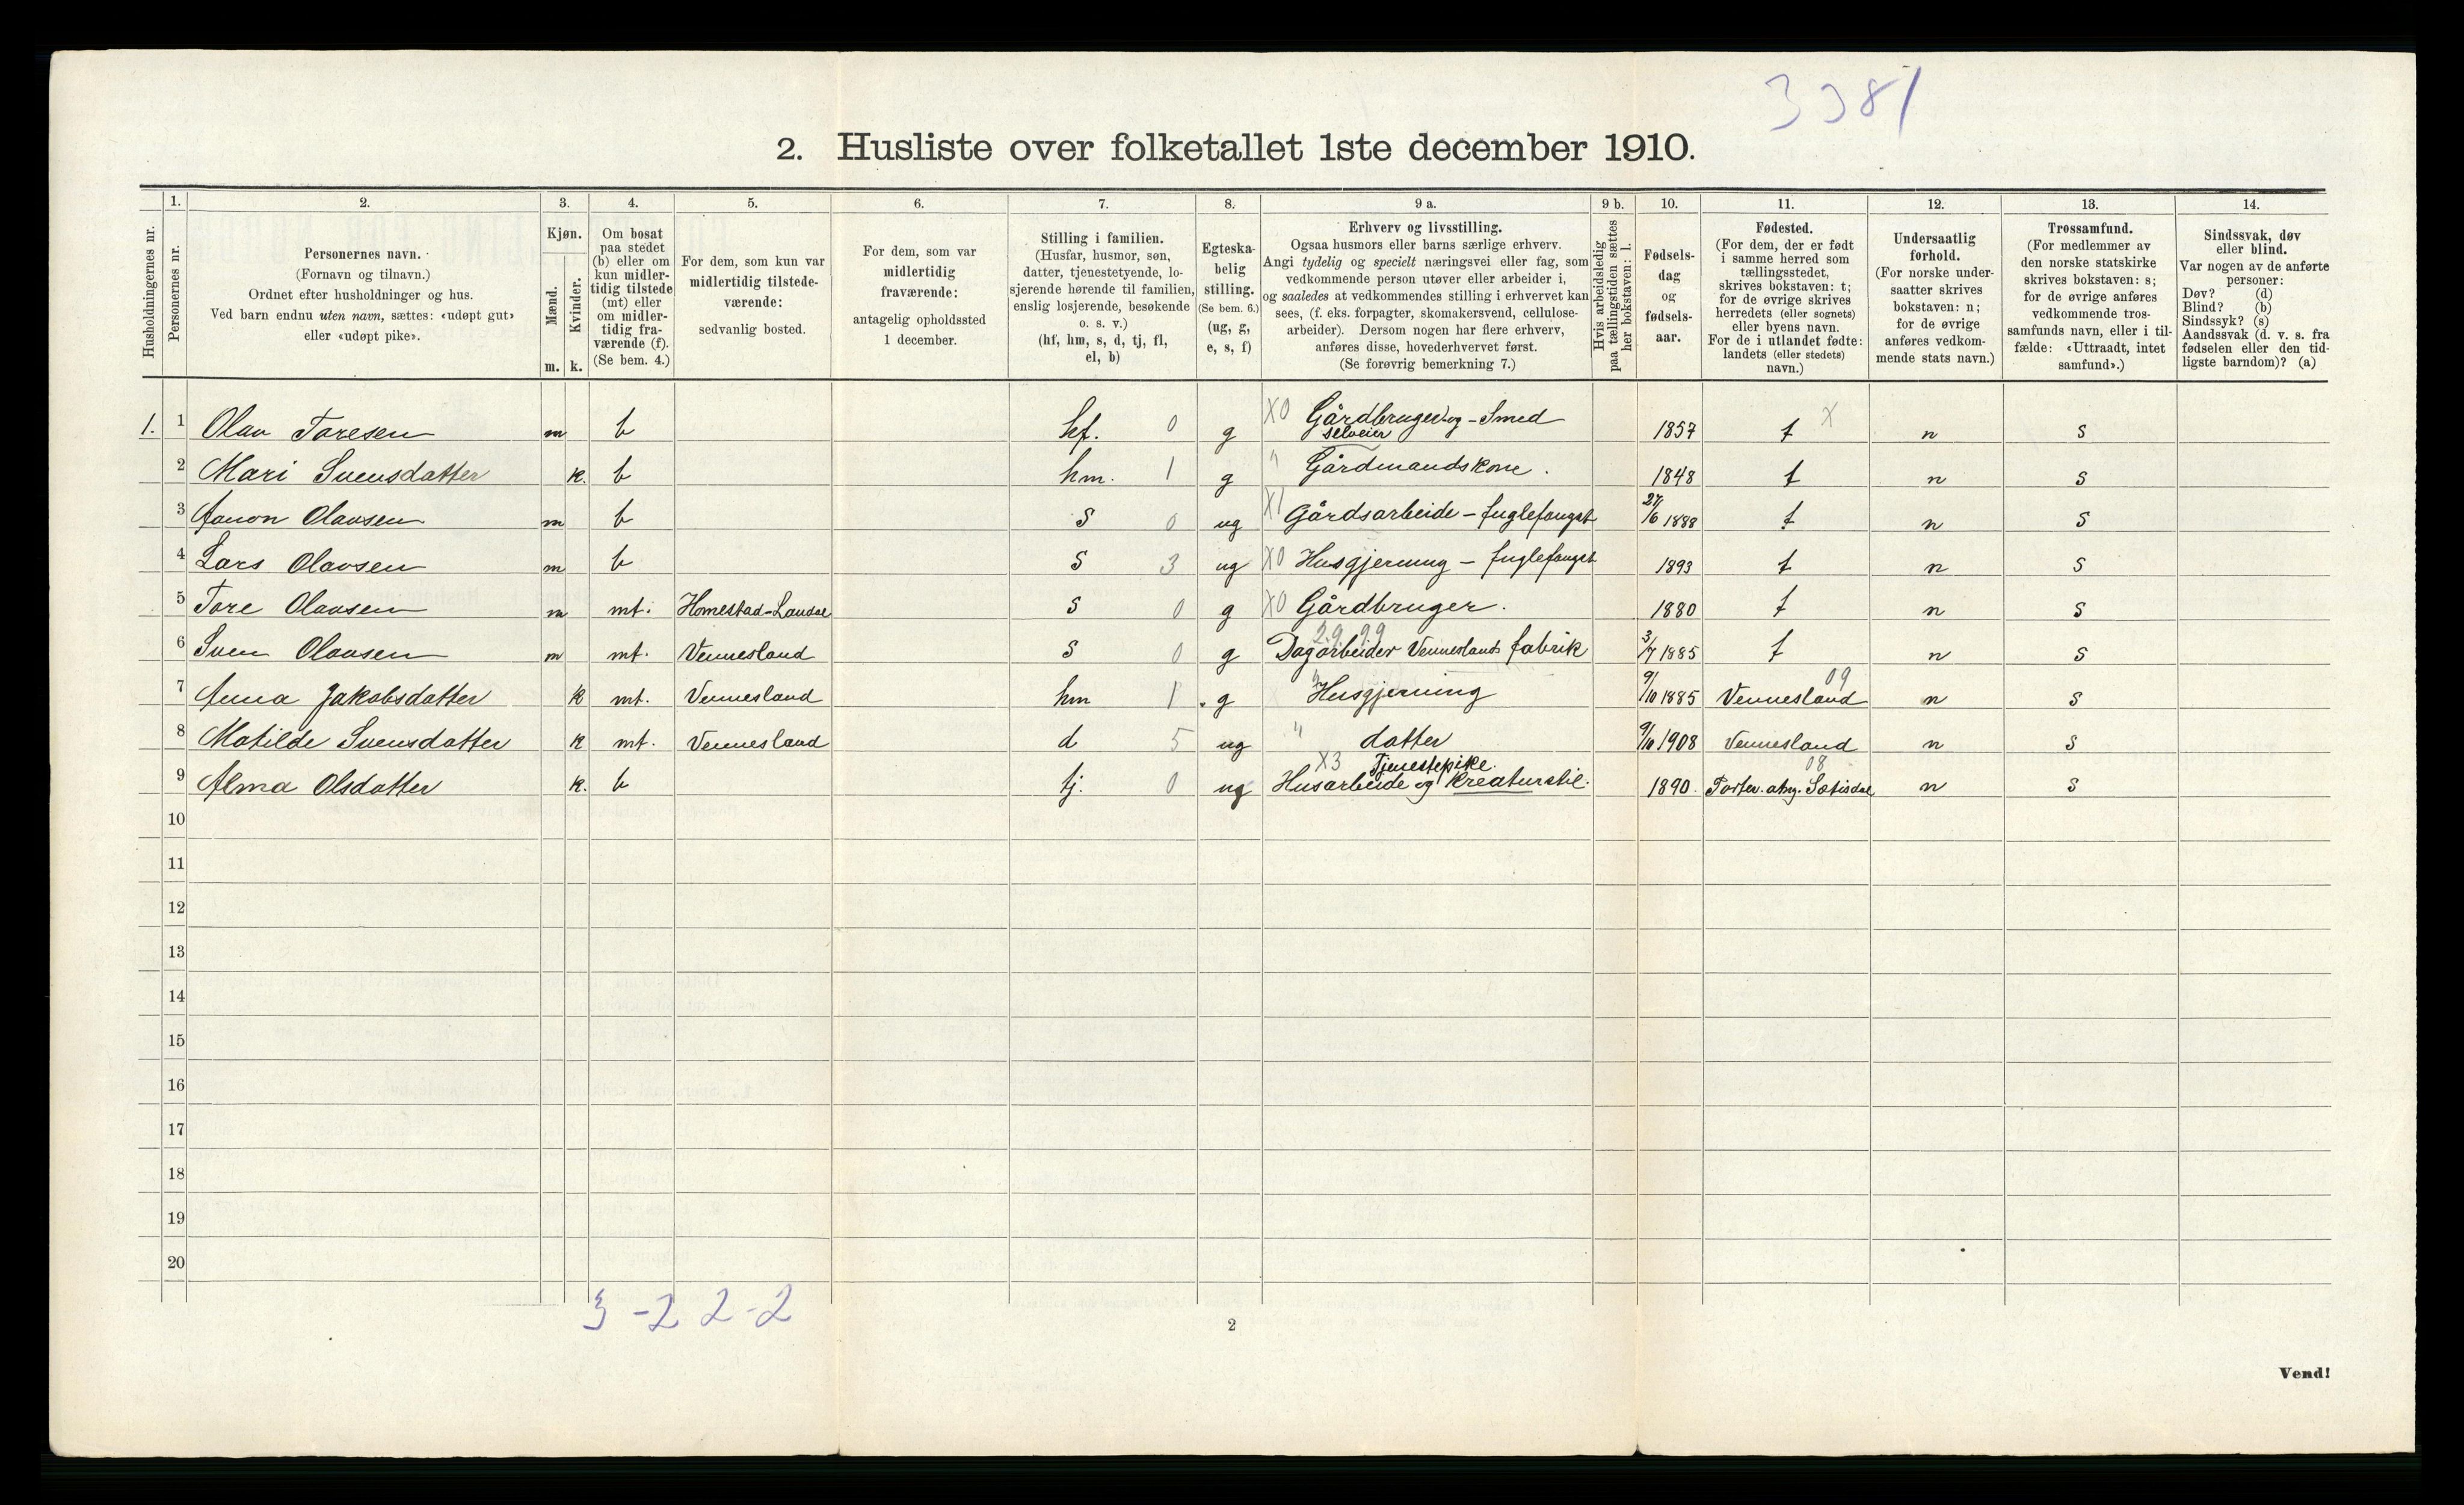 3381
2. Husliste over folketallet 1ste december 1910.
1. 2. 3. 4. 5. 6. 7. 8. 9 a. 9 b. 10. 11. 12. 13. 14.
Husholdningernes nr.
Personernes nr.
Personernes navn.
(Fornavn og tilnavn.)
Ordnet efter husholdninger og hus.
Ved barn endnu uten navn, sættes: «udøpt gut»
eller «udøpt pike».
Kjøn.
Mænd.
Kvinder.
m. k.
Om bosat
paa stedet
(b) eller om
kun midler-
tidig tilstede
(mt) eller
om midler-
tidig fra-
værende (f).
(Se bem. 4.)
For dem, som kun var
midlertidig tilstede-
værende:
sedvanlig bosted.
For dem, som var
midlertidig
fraværende:
antagelig opholdssted
1 december.
Stilling i familien.
(Husfar, husmor, søn,
datter, tjenestetyende, lo-
sjerende hørende til familien,
enslig losjerende, besøkende
o. s. v.)
(hf, hm, s, d, tj, fl,
el, b)
Egteska-
belig
stilling.
(Se bem. 6.)
(ug, g,
e, s, f)
Erhverv og livsstilling.
Ogsaa husmors eller barns særlige erhverv.
Angi tydelig og specielt næringsvei eller fag, som
vedkommende person utøver eller arbeider i,
og saaledes at vedkommendes stilling i erhvervet kan
sees, (f. eks. forpagter, skomakersvend, cellulose-
arbeider). Dersom nogen har flere erhverv,
anføres disse, hovederhvervet først.
(Se forøvrig bemerkning 7.)
Hvis arbeidsledig
paa tællingstiden sættes
her bokstaven: l.
Fødsels-
dag
og
fødsels-
aar.
Fødested.
(For dem, der er født
i samme herred som
tællingsstedet,
skrives bokstaven: t;
for de øvrige skrives
herredets (eller sognets)
eller byens navn.
For de i utlandet fødte:
landets (eller stedets)
navn.)
Undersaatlig
forhold.
(For norske under-
saatter skrives
bokstaven: n;
for de øvrige
anføres vedkom-
mende stats navn.)
Trossamfund.
(For medlemmer av
den norske statskirke
skrives bokstaven: s;
for de øvrige anføres
vedkommende tros-
samfunds navn, eller i til-
fælde: «Uttraadt, intet
samfund».)
Sindssvak, døv
eller blind.
Var nogen av de anførte
personer:
Døv? (d)
Blind? (b)
Sindssyk? (s)
Aandssvak (d. v. s. fra
fødselen eller den tid-
ligste barndom)? (a)
1. 1 Olav Toresen m b hf. 0 g X0 Gårdbruger og - Smed 1857 t X n s
selveier
2 Mari Svensdatter k. b hm. 1 g " Gårdmandskone. 1848 t n s
3 Aanon Olavsen m b s 0 ug X1 Gårdsarbeide - fuglefangst 27/6 1888 t n s
4 Lars Olavsen m b s 3 ug X0 Husgjerning - fuglefangst 1893 t n s
5 Tore Olavsen m mt. Homestad-Laudal s 0 g X0 Gårdbruger. 1880 t n s
6 Sven Olavsen m mt. Vennesland s 0 g 29.99 Dagarbeider Venneslands fabrik 3/7 1885 t n s
7 Anna Jakobsdatter k mt. Vennesland hm 1 g " Husgjerning 9/10 1885 Vennesland 09 n s
8 Matilde Svensdatter k mt. Vennesland d 5 ug " datter 9/10 1908 Vennesland n s
X3 Tjenestepike. 08
9 Alma Olsdatter k. b tj. 0 ug Husarbeide og kreaturstel. 1890. Sætisdal n s
10
11
12
13
14
15
16
17
18
19
20
3-2 2-2
2
Vend!